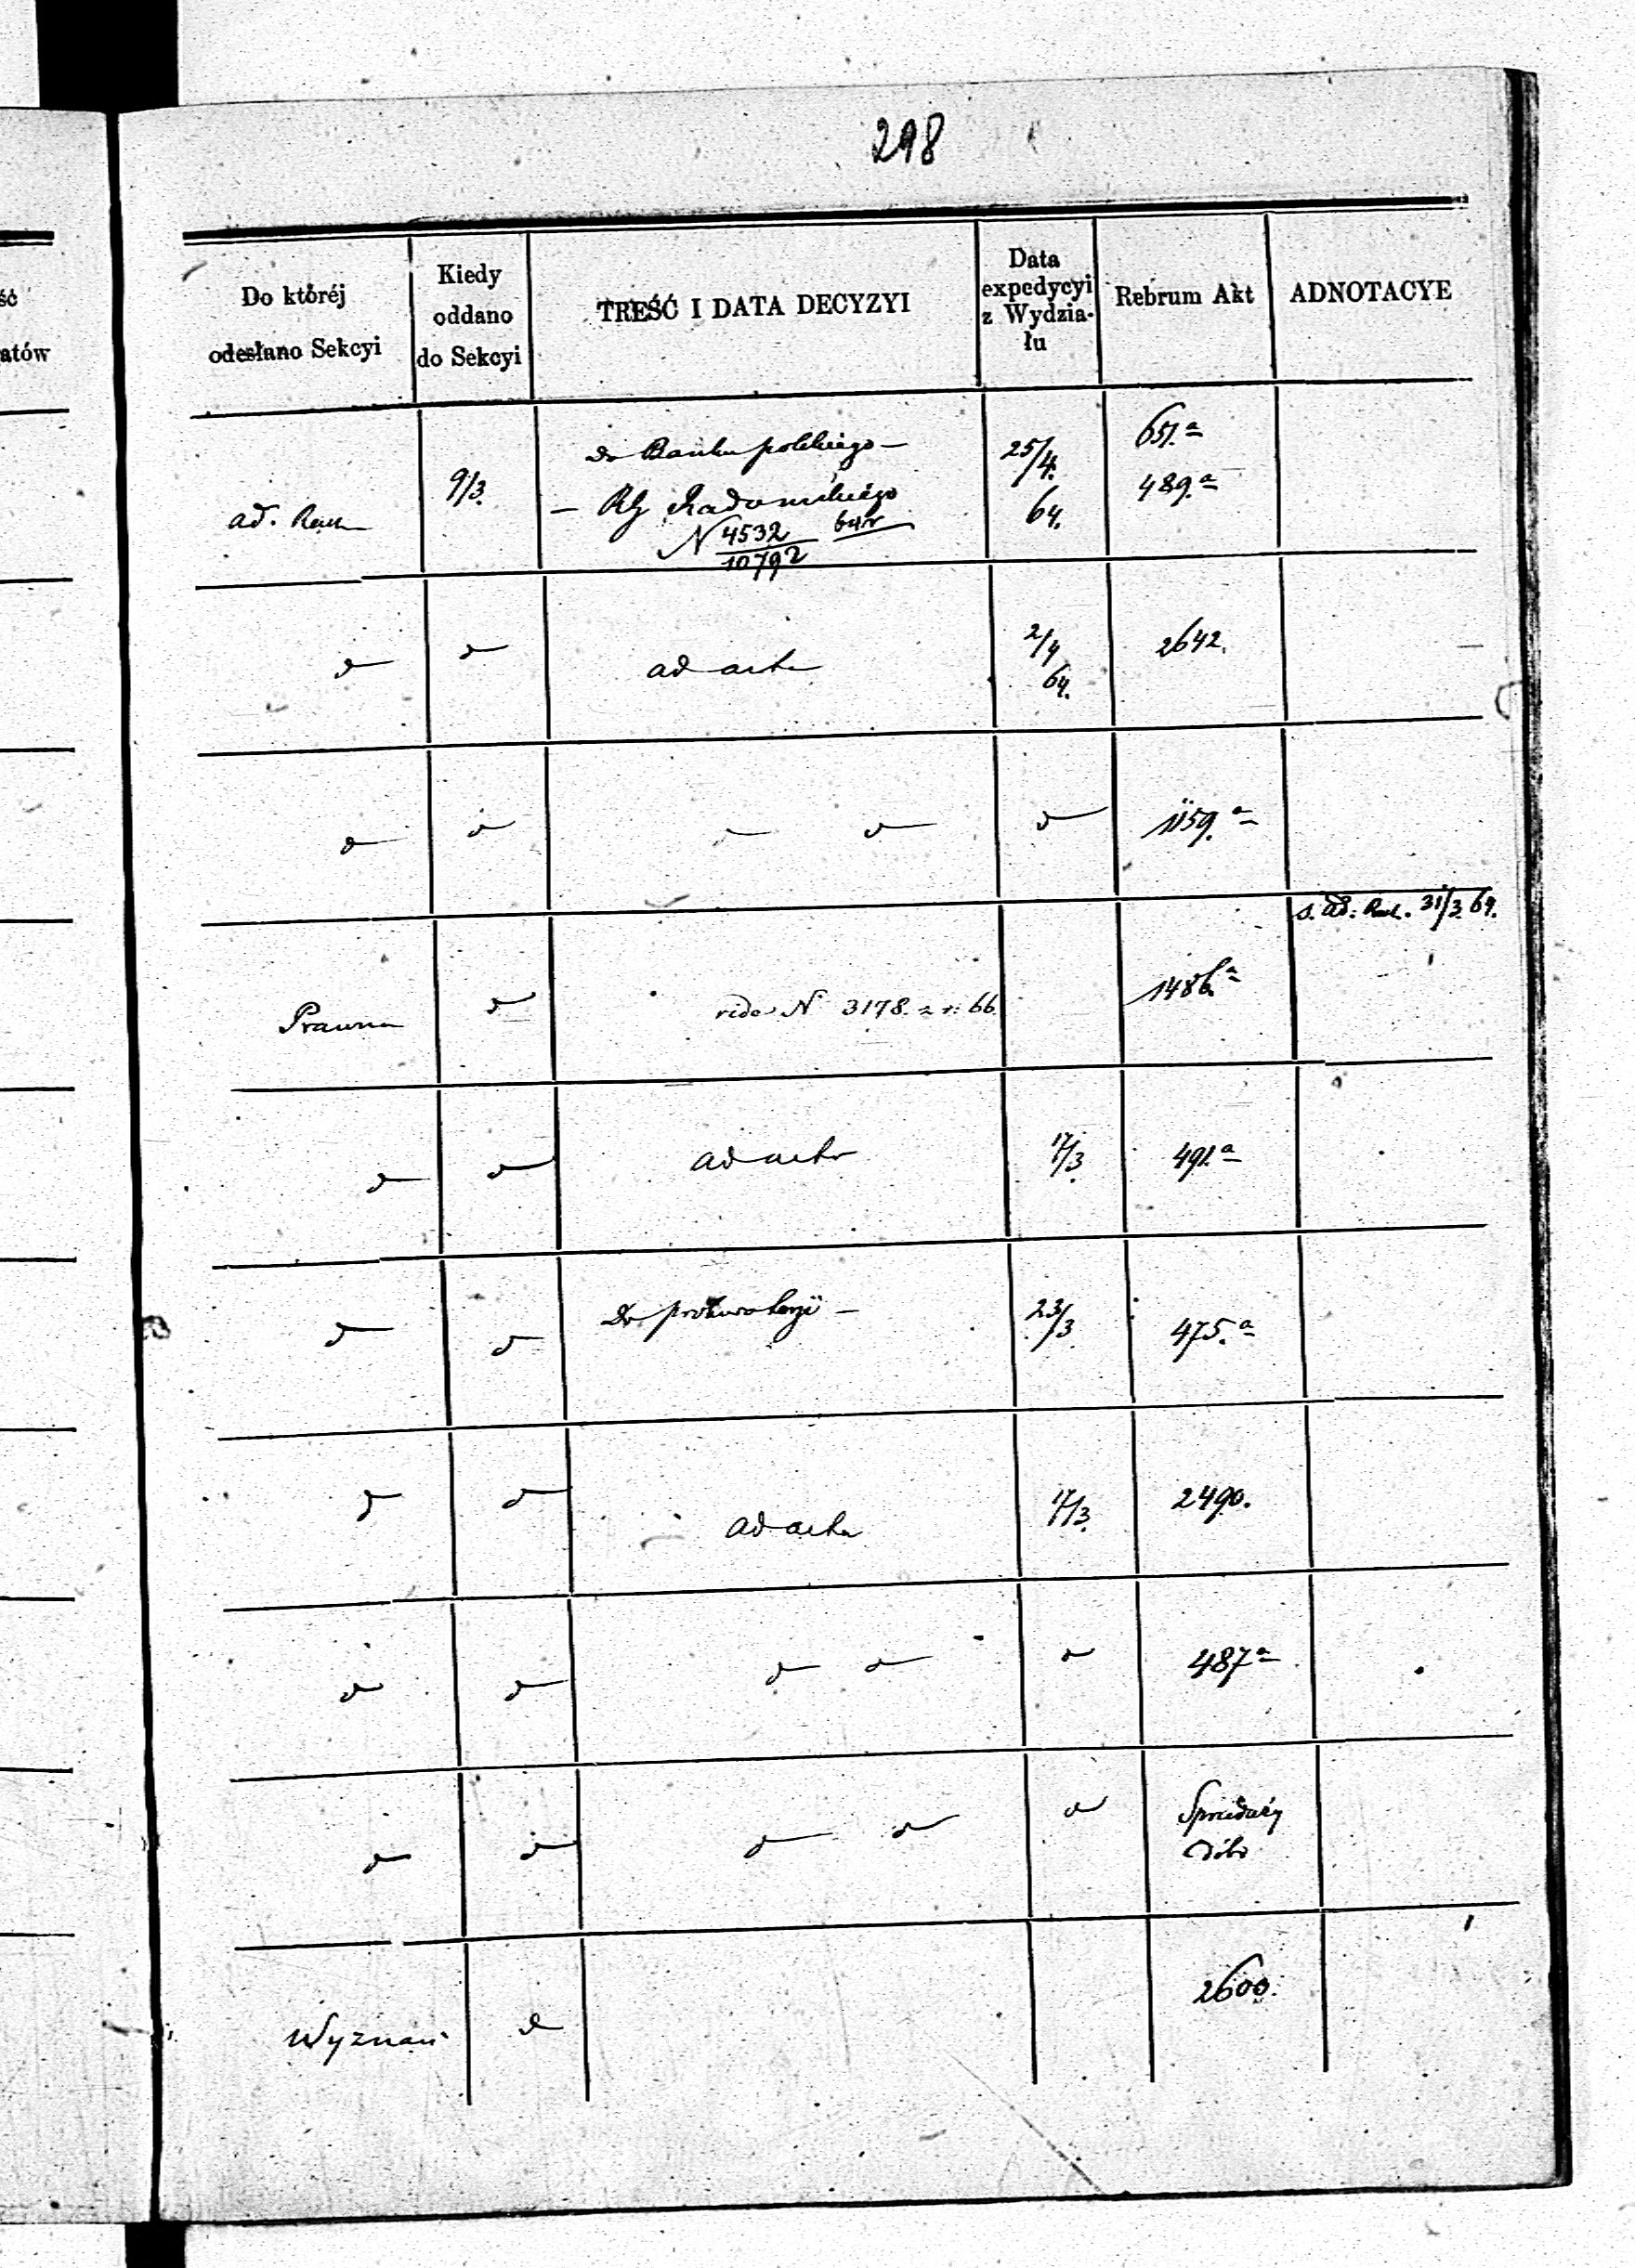 298
ść
atów
Do któréj
odesłano Sekcyi
Kiedy
oddano
do Sekcyi
TREŚĆ I DATA DECYZYI
Data
expedycyi
z Wydzia-
łu
Rebrum Akt
ADNOTACYE
ad. Rach
9/3.
Do Banku polskiego —
— RG Radomskiego
N 4532 64 r
10792
25/4.
64.
651.a
489.a
d
d
ad acta
2/4
64.
2642.
d
d
d d
d
1159.a
s. ad. Rach. 31/3 64.
Prawna
d
vide N 3178. z r. 66.
1486.a
d
d
ad acta
17/3.
491.a
d
d
Do prokuratoryi —
23/3.
475.a
d
d
ad acta
17/3.
2490.
d
d
d d
d
487a
d
d
d d
d
Sprzedaży
dóbr
Wyznań
d
2600.